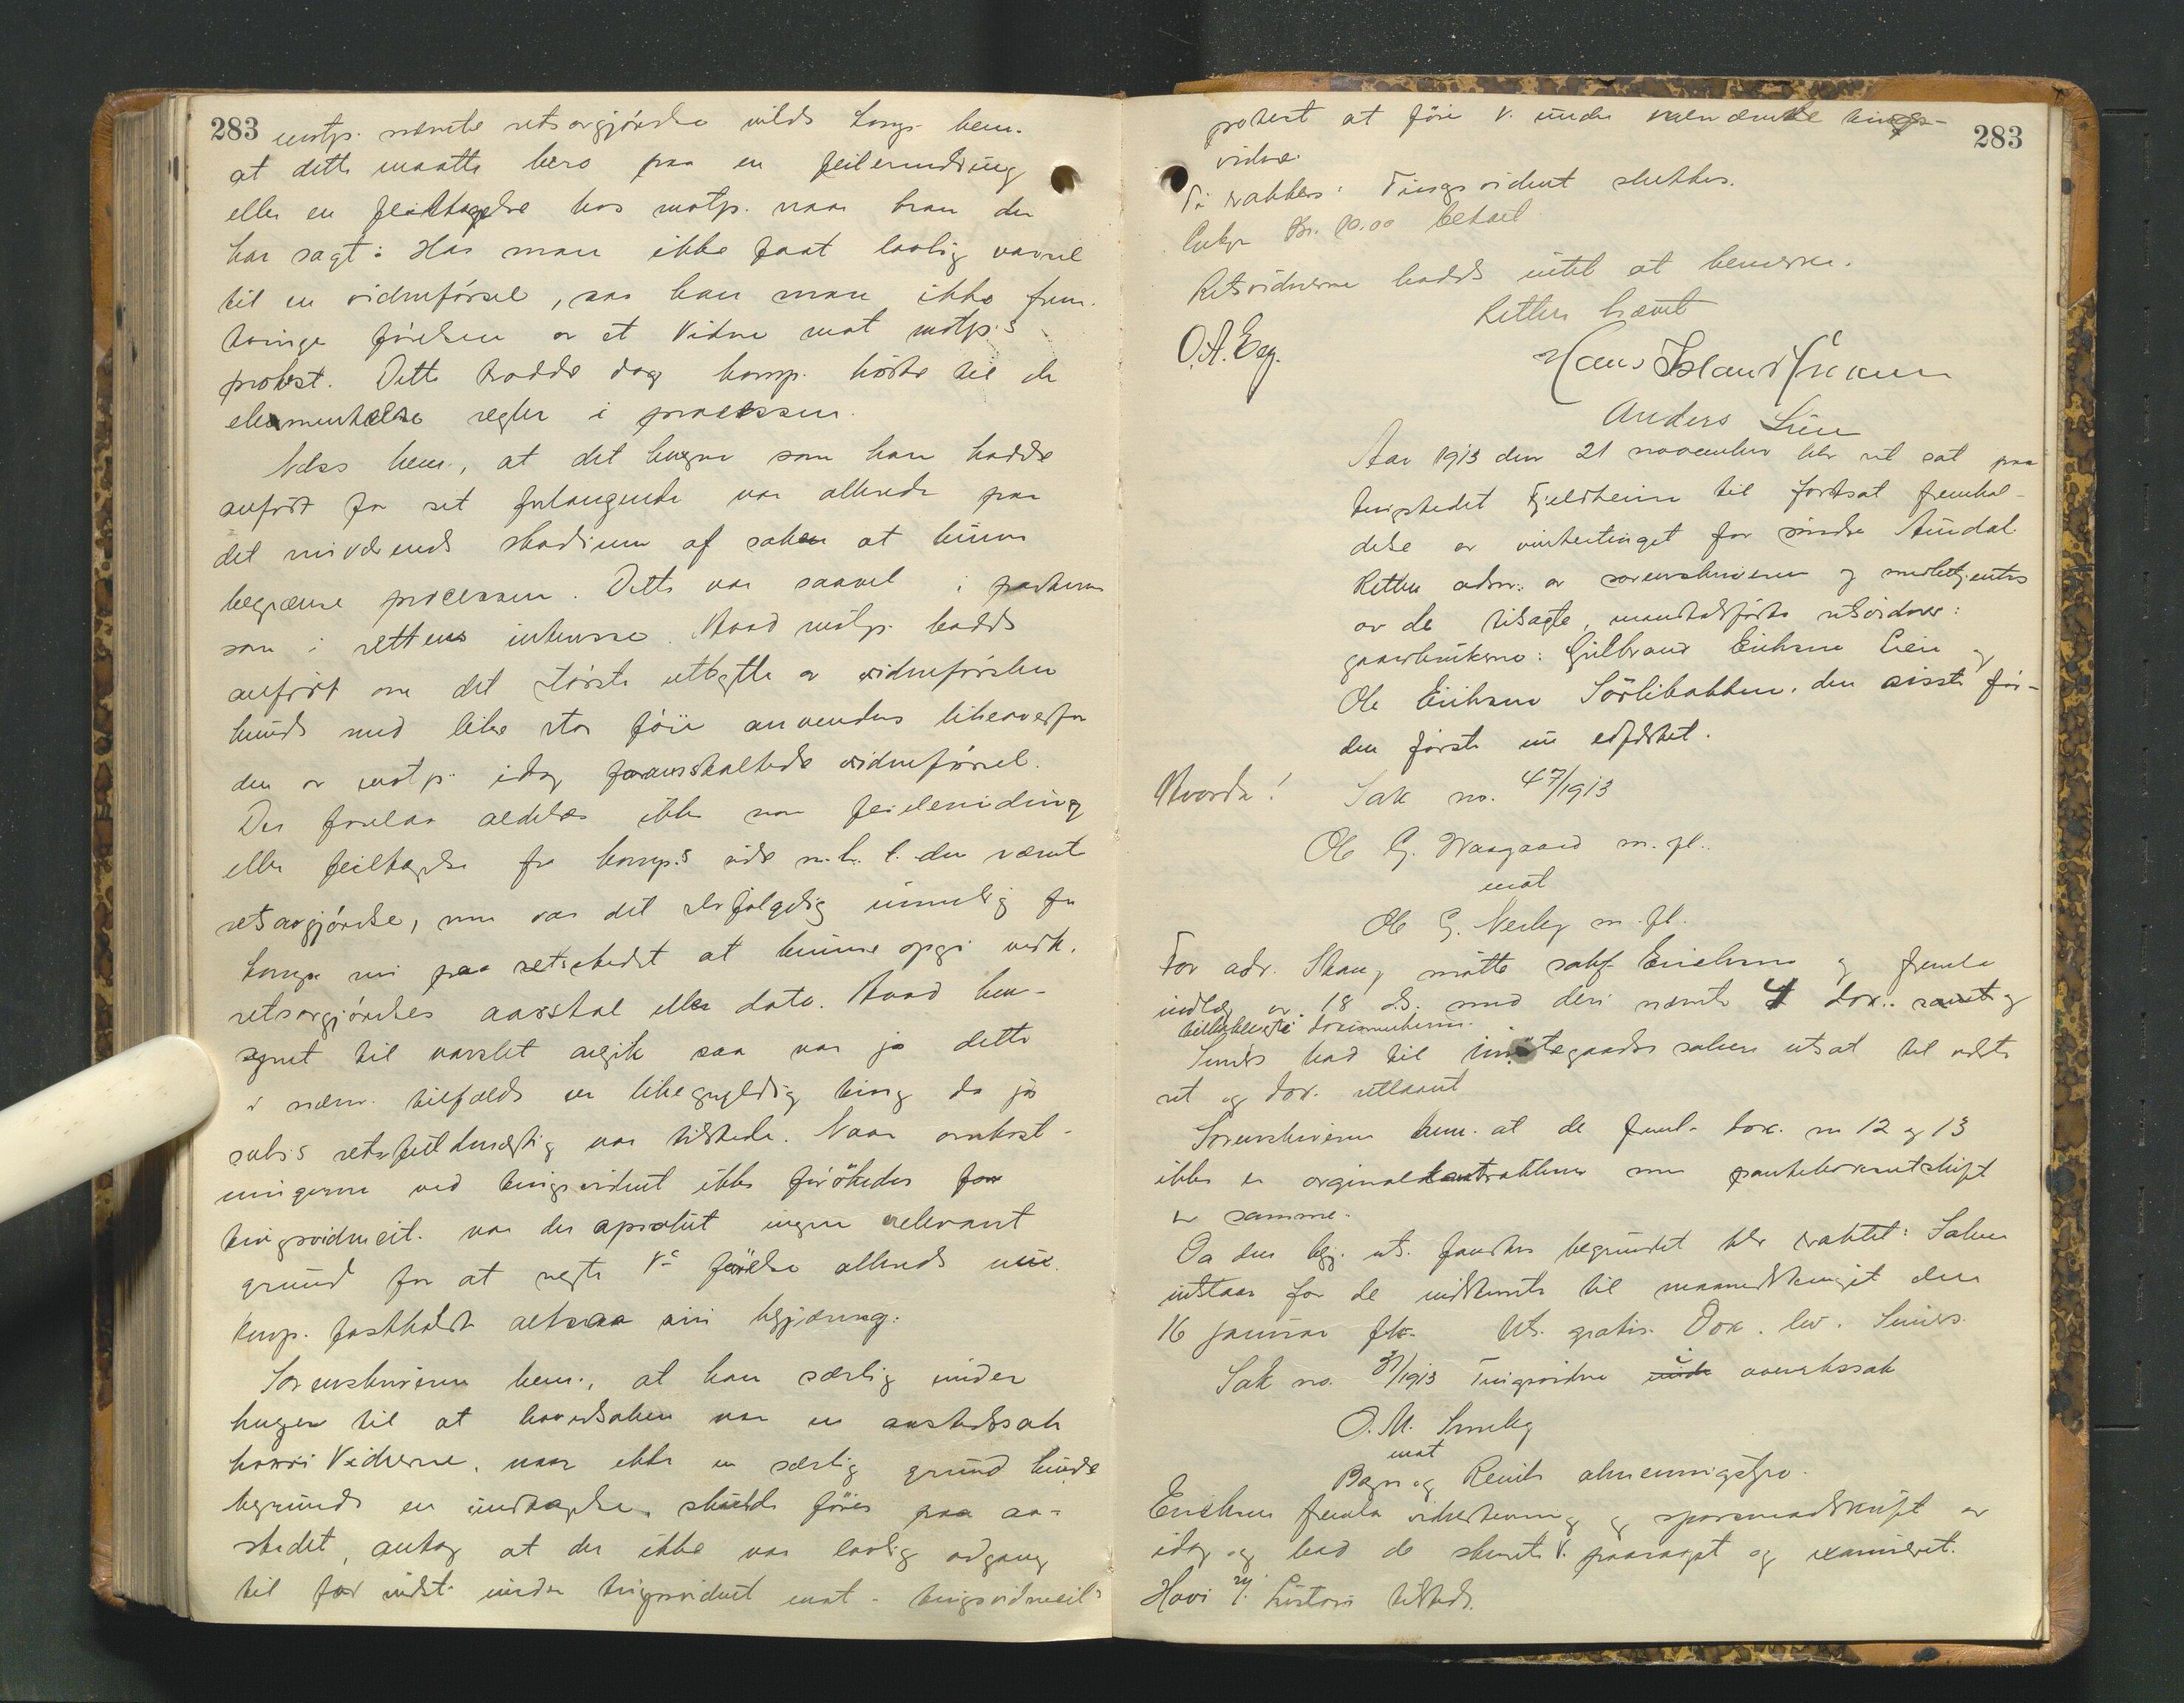 283
motp. nævnte retsavgjørelse vilde komp. bem.
at dette maatte bero paa en feilerindring
eller en feiltagelse hos motp. naar han der
har sagt: Har man ikke faat lovlig varsel
til en vidneførsel, saa kan man ikke frem-
tvinge førelsen av et Vidne mot motp.s
protest. Dette trodde dog komp. hørte til de
elementæleste regler i processen.
Næss bem., at det hvorom som han hadde
anført for sit forlangende var allerede paa
det nuværende stadium af saken at kunne
begrænse processen. Dette var saavel i parternes
som i rettens interesse. Hvad motp. hadde
anført om det største utbytte av vidneførslen
kunde med like stor føie anvendes likeoverfor
den av motp. idag foranstaltede vidneførsel.
Der forelaa aldeles ikke noen feilerindring
eller feiltagelse fra komp.s side m.h.t. den nævnte
retsavgjørelse, men var det selvfølgelig umulig for
komp. nu paa retsstedet at kunne opgi vedk.
retsavgjørelses aarstal eller dato. Hvad hen-
synet til varslet angik saa var jo dette
i nærv. tilfælde en likegyldig ting da jo
retsfuldmægtig var tilstede. Naar omkost-
ningerne ved tingsvidnet ikke forøkedes for
tingsvidneit. var der apsolut ingen relevant
grund for at negte V.s førelse allerede nu.
Komp. fastholdt altsaa sin begjæring.
Sorenskriveren bem., at han særlig under
hensyn til at hovedsaken var en aastedssak
hvori Vidnerne, naar ikke en særlig grund kunde
begrunde en undtagelse, skulde føres paa aa-
stedet, antog at der ikke var lovlig adgang
til for indst. under tingsvidnet mot tingsvidneit.s
283
protest at føre V. under nærværende tings-
vidne.
Ti vaktes: Tingsvidnet sluttes.
Gebyr Kr. 10.00 betalt
Retsvidnerne hadde intet at bemerke.
Retten hævet
O.A. Eeg.
Hans Island
Anders Lien
Aar 1913 den 21 november blev ret sat paa
tingstedet Fjeldheim til fortsat fremhol-
delse av vintertinget for søndre Aurdal.
Retten adm. av sorenskriveren og medbetjentes
av de tilsagte, mandtalsførte retsvidner:
gaardbrukerne: Gulbrand Eriksen Lien og
Ole Eriksen Sørlibakken, den sisste for-
den første nu edfæstet.
Hvorda!
Sak no. 47/1913
Ole G. Waagaard m.fl.
mot
Ole G. Nerby m.fl.
For adv. Skau, møtte sakf. Erichsen og fremla
indlæg av 18 d.s. med deri nævnte 4 dok. samt og
tilbakeleverte dokumenterne.
Smeds bad til imøtegaaelse saken utsat til næste
ret og dok. utlaant
Sorenskriveren bem. at de freml. dok. no 12 og 13
ikke er orginalkontrakterne men panteboksutskrift
av samme.
Da den begj. uts. fandtes begrundet blev vaktet: Saken
utstaar for de indstevnte til maanedstinget den
16 januar fk. Uts. gratis. Dok. lev. Smeds.
Sak no. 31/1913 Tingsvidne i overetssak
O.M. Smeby
mot
Bagn og Reinli almenningsstyre.
Erichsen fremla vidnestevning og spørsmaalsskrift av
idag og bad de stevnte V. paaropt og examineret.
Hovi tilstede.